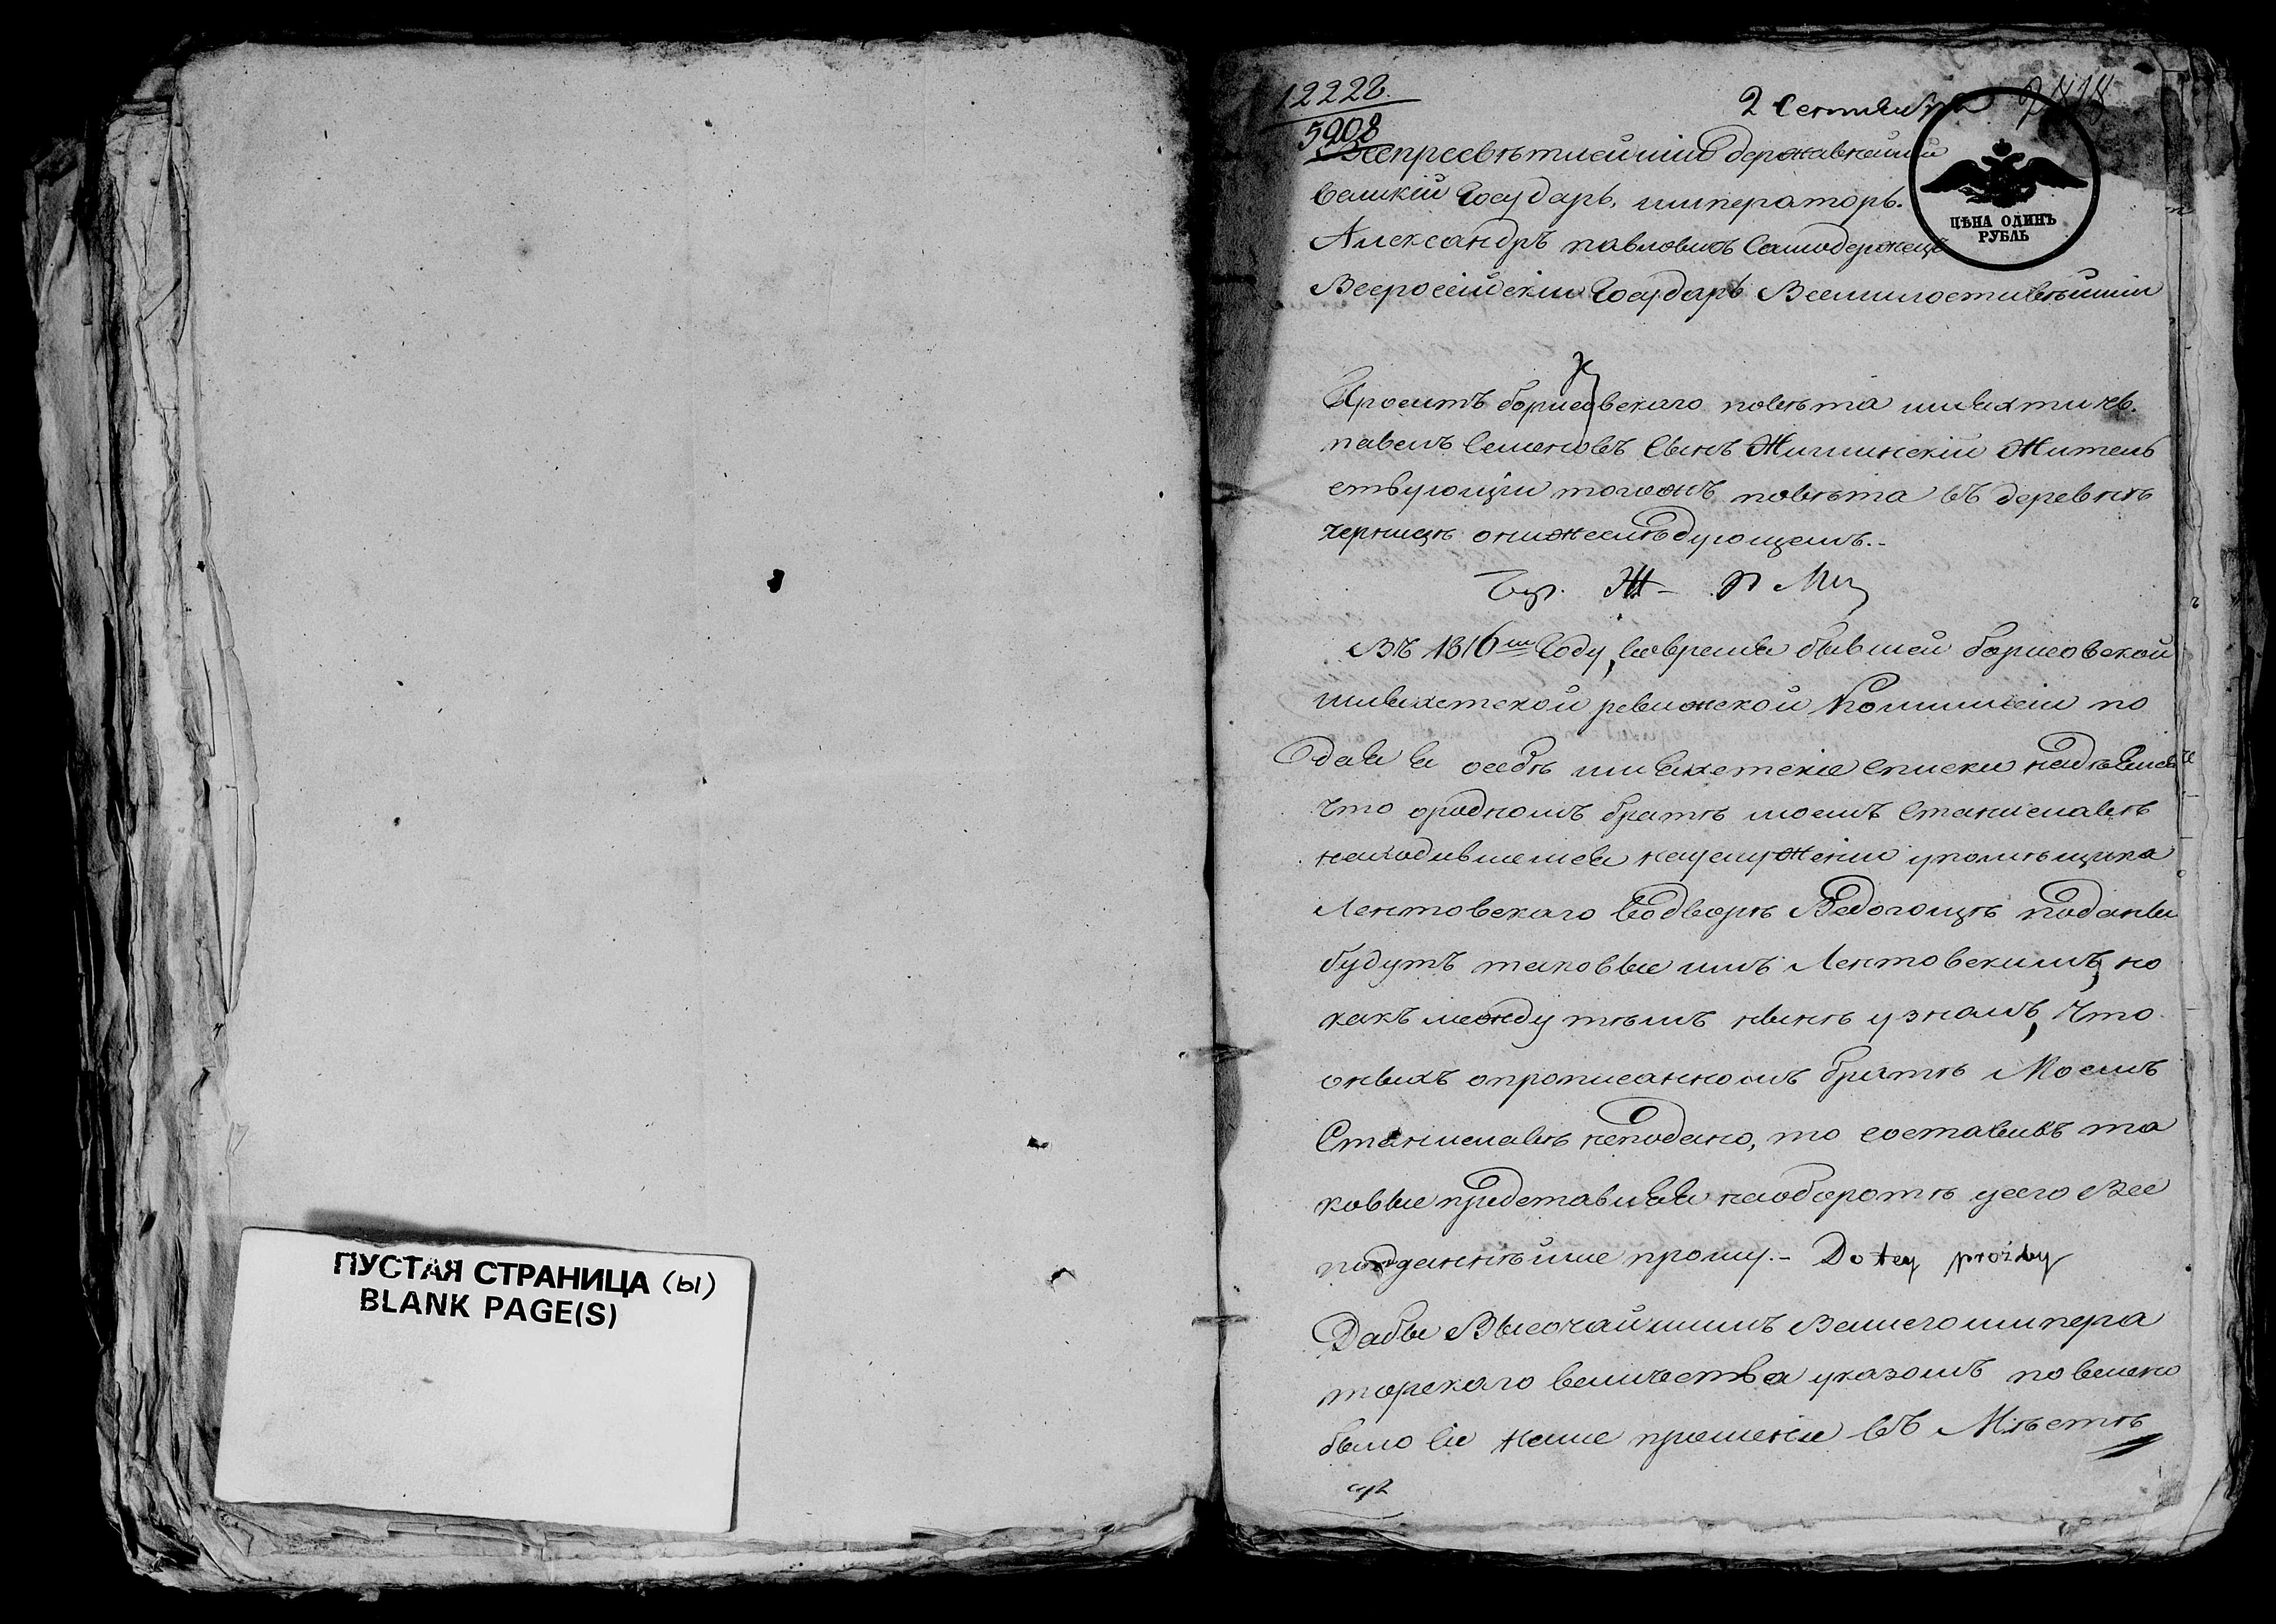 ПУСТАЯ СТРАНИЦА (ы)
BLANK PAGE(S)
12228.
5908
2 Сентября 1818
ЦѢНА ОДИНЪ
РУБЛЬ
Всепресветлейший державнейший
великій Государь, император.
Александръ павловичь Самодержецъ
Всеросейскій Государь Всемилостивѣйший
Проситъ борисовского повѣта шляхтичь.
павелъ Семеновъ Сынъ Жилинскій Житель
ствующій тогожъ повѣта въ деревнѣ
чернице онижеслѣдующемъ.-
Въ 1816мъ Году, вовремя бывшей борисовской
шляхетской ревижской Коммисіи по
дал я осебѣ шляхетскіе списки надѣясь
что ородномъ братѣ моемъ Станиславѣ
находившемся науслуженіи упомѣщика
Лентовского Водворѣ Ведогощѣ поданы
будутъ таковые имъ Лентовскимъ, но
какъ между тѣмъ нынѣ узналъ, Что
оныхъ опрописанномъ братѣ Моемъ
Станиславѣ неподано, то составивъ та
ковые представляя наоборотѣ усего Все
подданнѣйше прошу.- Do tey proźby
Дабы Высочайшимъ Вашего импера
торскаго величества указомъ повелено
было сіе наше прошеніе въ Мѣстѣ